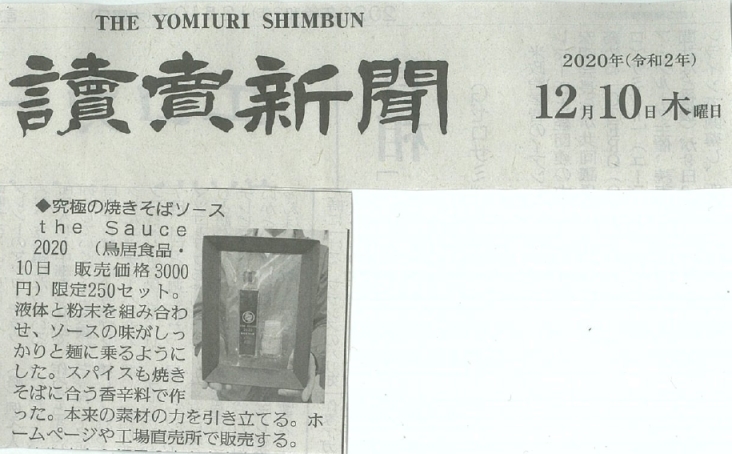 THE YOMIURI SHIMBUN
讀賣新聞
2020年(令和2年)
12月10日木曜日
◆究極の焼きそばソース
the Sauce
2020 (鳥居食品・
10日 販売価格3000
円)限定250セット。
液体と粉末を組み合わ
せ、ソースの味がしっ
かりと麺に乗るように
した。スパイスも焼き
そばに合う香辛料で作
った。本来の素材の力を引き立てる。ホ
ームページや工場直売所で販売する。